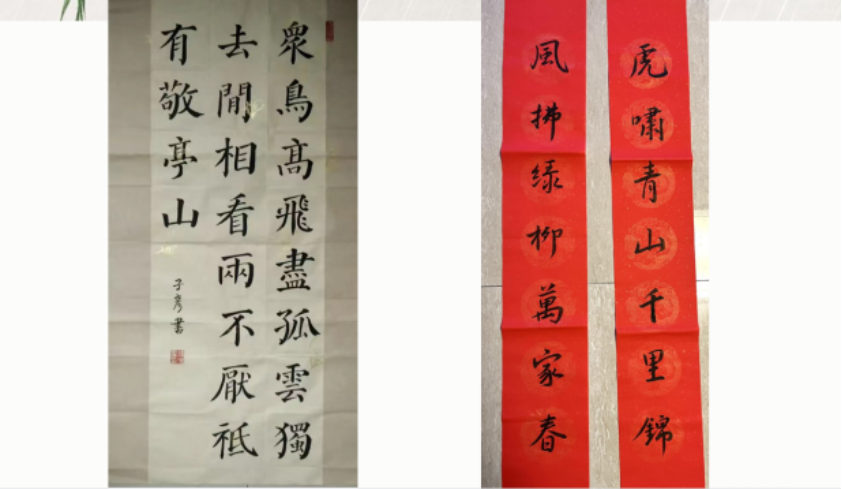 眾鳥高飛盡孤雲獨
去閒相看兩不厭祗
有敬亭山
子彥書
虎嘯青山千里錦
風拂绿柳萬家春